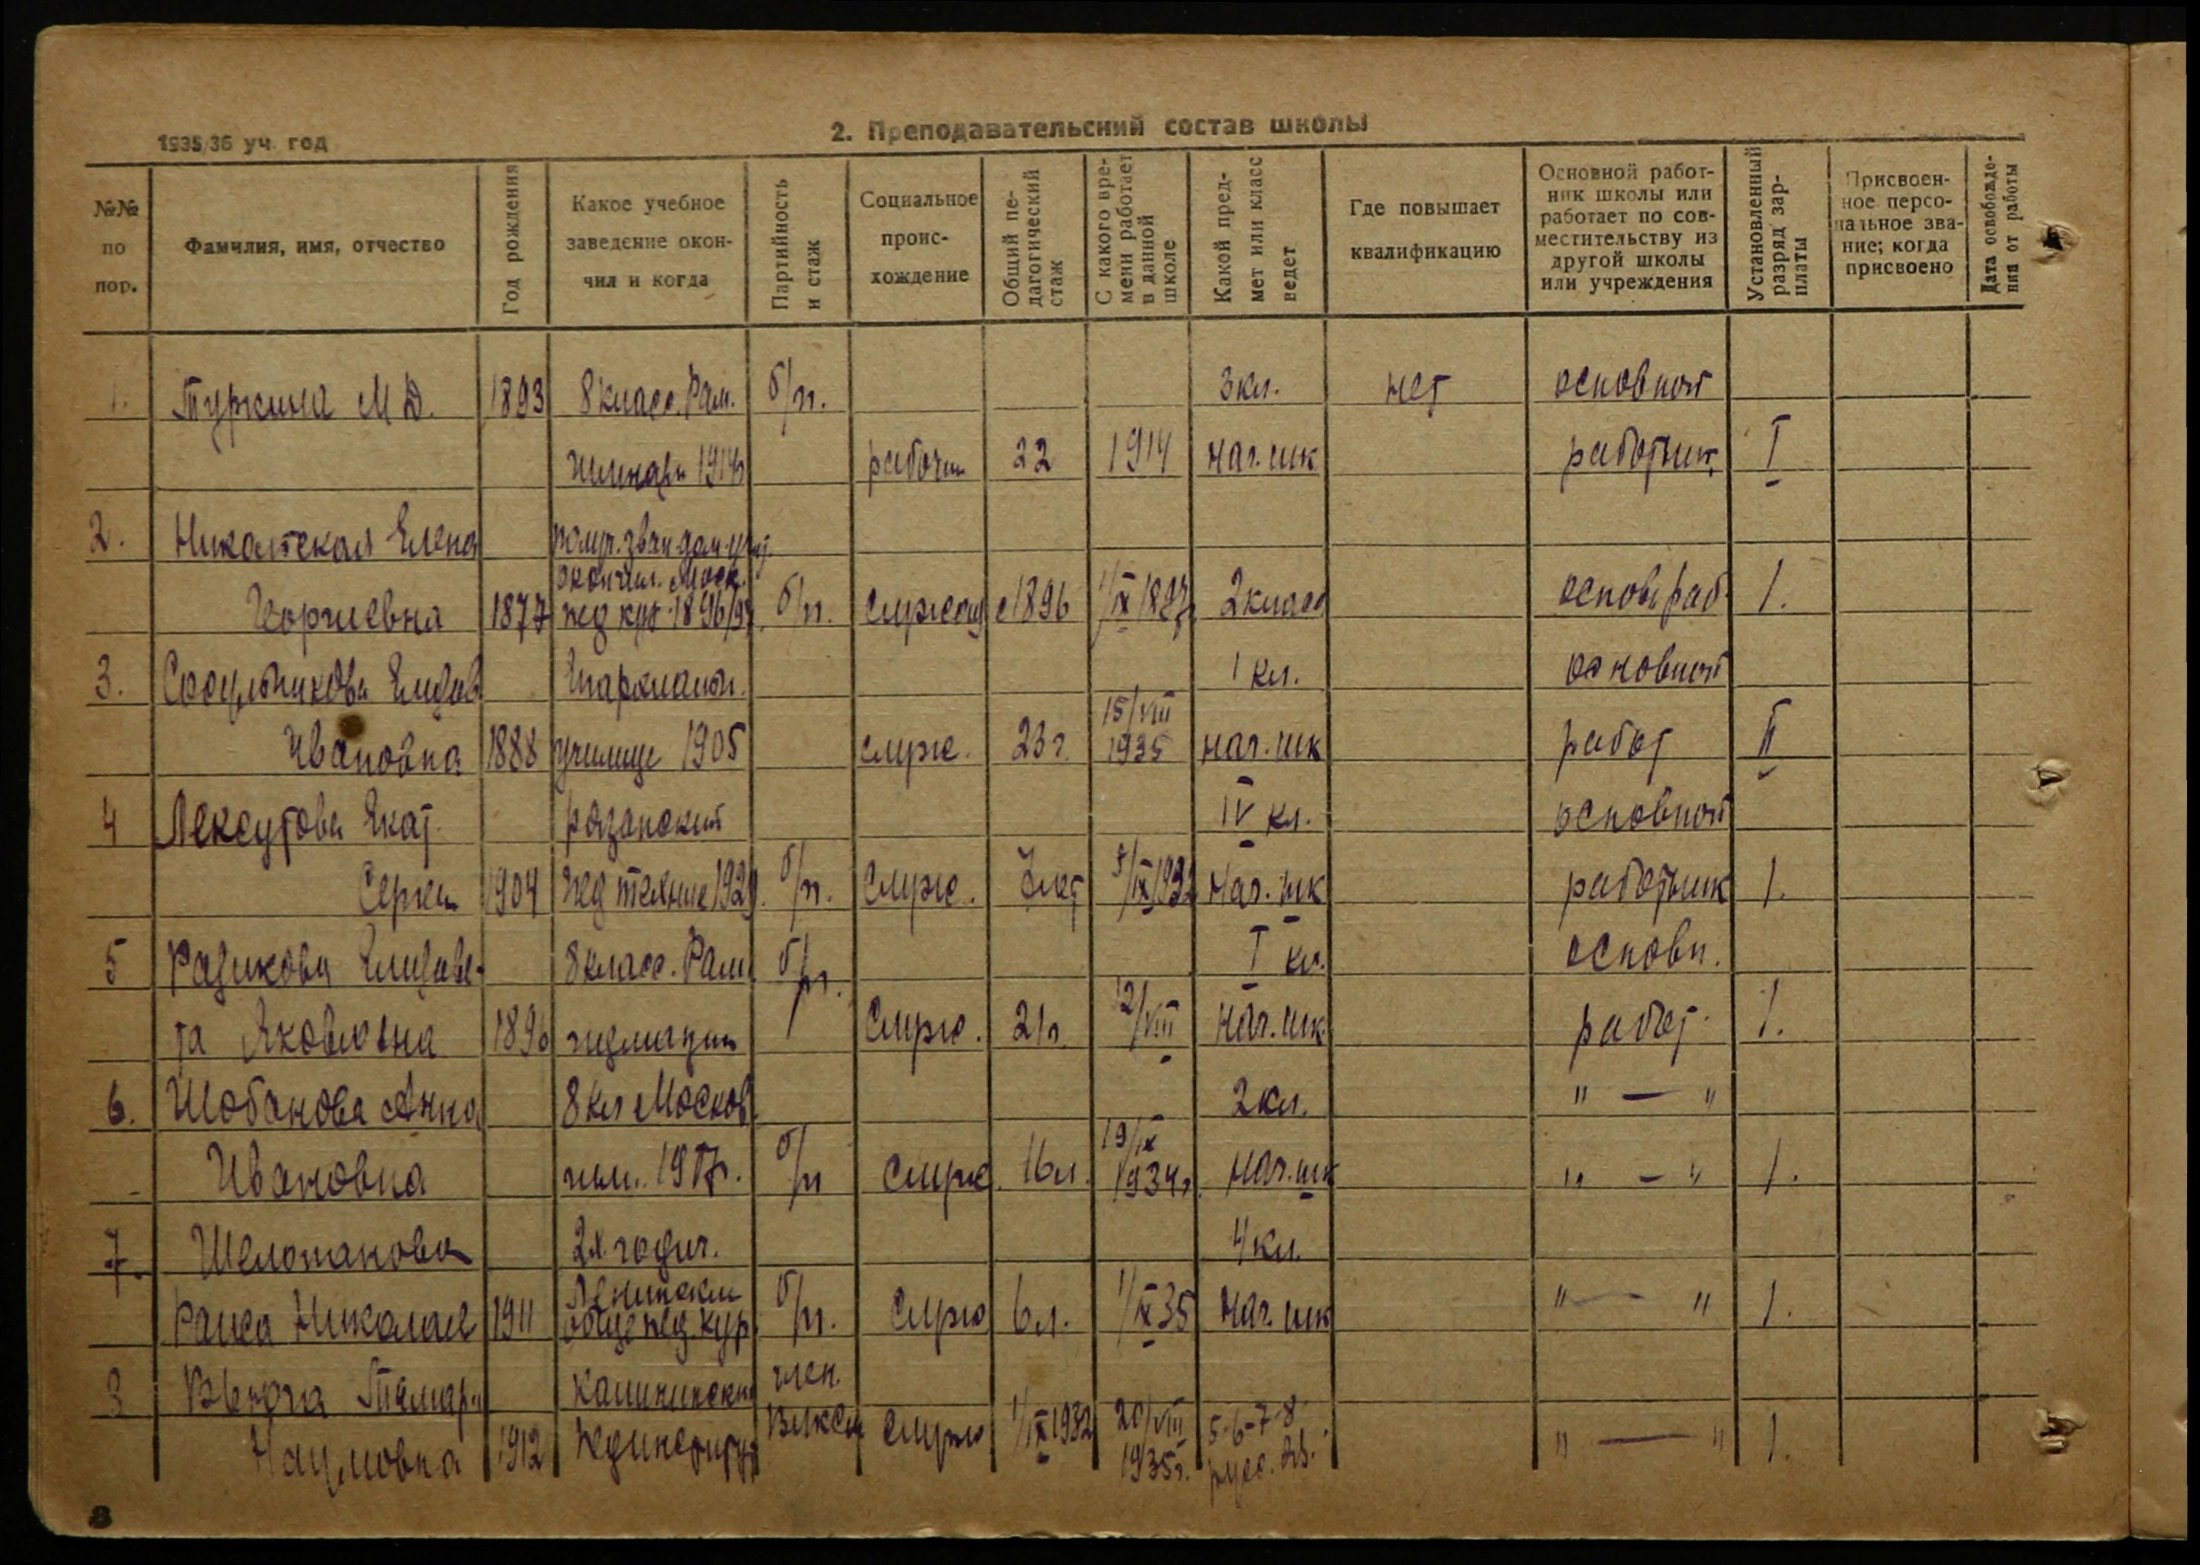 1935/36 уч. год
2. Преподавательский состав школы
№№ по пор.
Фамилия, имя, отчество
Год рождения
Какое учебное заведение окончил и когда
Партийность и стаж
Социальное происхождение
Общий педагогический стаж
С какого времени работает в данной школе
Какой предмет или класс ведет
Где повышает квалификацию
Основной работник школы или работает по совместительству из другой школы или учреждения
Установленный разряд зарплаты
Присвоенное персональное звание; когда присвоено
Дата освобождения от работы
1. Туркина М Д. 1893 8 класс. Рам. б/п. 3 кл. нет основной
гимнази 1914г рабочий 22 1914 нач. шк работник I
2. Никольская Елена получ. зван. дом. учит.
окончил. Моск.
Георгиевна 1877 пед кур 1896/97 б/п. служащ с 1896 1/IX 1897 2 класс основ раб 1.
3. Сосульникова Елизав 1 кл. основной
15/VIII
Ивановна 1888 училище 1905 служ. 23 г. 1935 нач. шк работ II
4 Лексутова Екат. рязанский IV кл. основной
Серги 1904 пед техник 192 б/п. Служ. лет /IX 1932 нач. шк работник 1.
5 Радикова Елизаве- 8 класс. Рам б/п. I кл. основн.
та Яковлевна 1896 гидмации Служ. 21 г. 12/VIII нач. шк работ. 1.
6. Шобанова Анна 8 кл Москов 2 кл. " — "
19/IX
Ивановна гим. 1917г. б/п служ. 16 л. 1934 г. нач. шк " — " 1.
7. Шелопанова 2х годич. 4 кл.
Ленински
Раиса Николае 1911 общепед. кур. б/п. Служ 6 л. 1/IX 35 нач. шк " — " 1.
8 Тамара Калининский член
Наумовна 1912 Пединститут ВЛКСМ Служ 1/IX 1932 20/VIII 5-6-7-8 " — " 1.
1935 г. русс. яз.
8